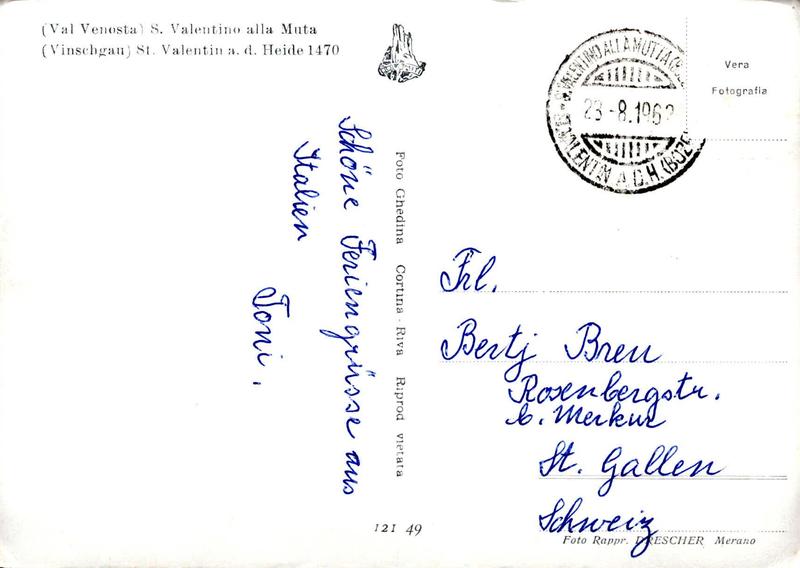 (Val Venosta) S. Valentino alla Muta
(Vinschgau) St. Valentin a. d. Heide 1470
Vera
Fotografia
S. VALENTINO ALLA MUTTA
28-8.196
VALENTIN A.D.H.
Schöne Feriengrüsse aus
Italien
Toni.
Foto Ghedina Cortina - Riva Riprod vietata
Frl.
Bertj Breu
Rosenbergstr.
b. Merkur
St. Gallen
Schweiz
121 49
Foto Rappr. DRESCHER Merano